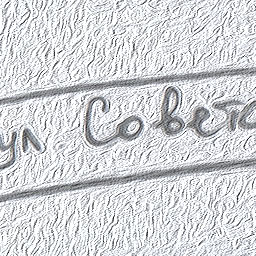 ул Совет